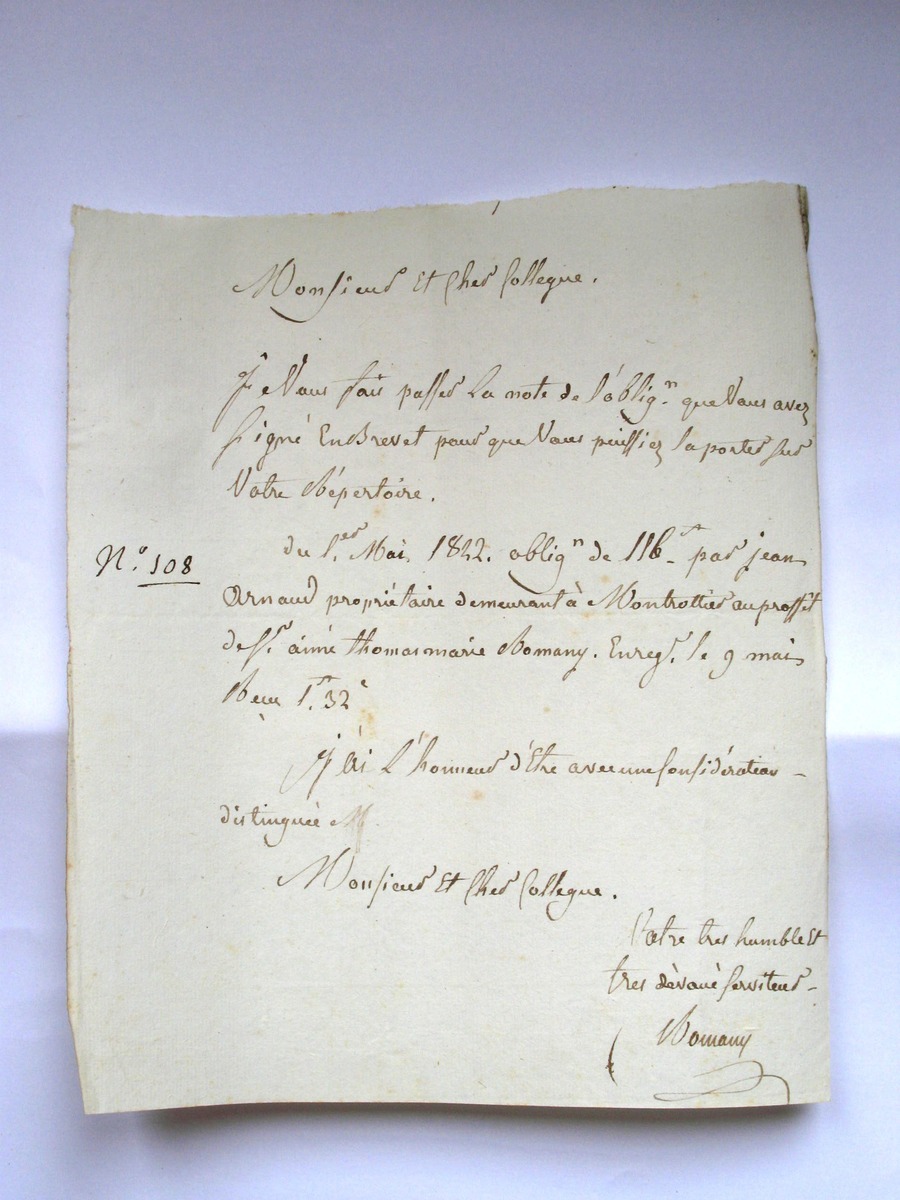 Monsieur Et Cher Collegue.
Je Vous fais passer La note de l'oblig.n que Vous avez
signé En Brevet pour que Vous puissiez la porter sur
Votre Répertoire.
N.o 108
du 1.er Mai 1822. oblig.n de 116.f par jean
Arnaud propriétaire demeurant à Montrottier au proffit
de S.r aimé thomas marie Romany. Enreg.r le 9 mai
Reçu 1.f 32c
J'ai L'honneur d'Etre avec une Considération
distinguée
Monsieur Et Cher Collegue.
Votre tres humble Et
tres dévoué serviteur
Romany